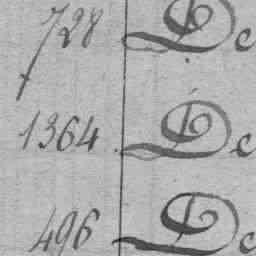 728 De
1364. De
496 De